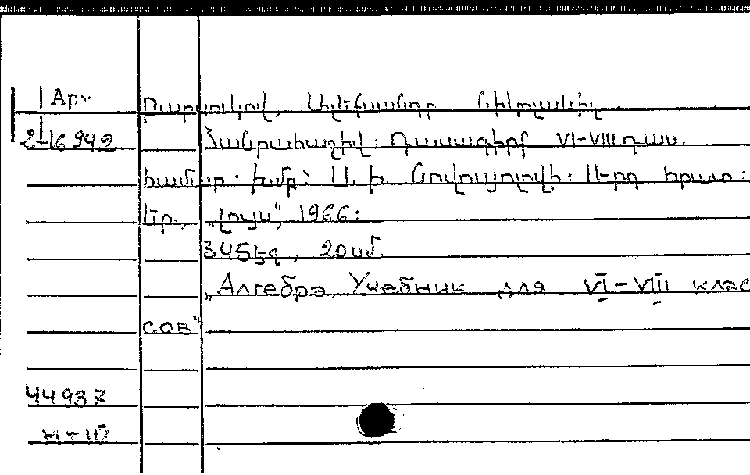 Арм Բարսուկով, Ալեքսանդր Նիկոլաևիչ
2-16942 Հանրահաշիվ: Դասագիրք VI-VIII դաս.
համար: խմբ՝ Ս. Ի. Նովոսյոլովի: 11-րդ հրատ:
Եր., „Լույս“, 1966:
345 էջ, 20 սմ.
„Алгебра Учебник для VI-VIII клас
сов“
44937